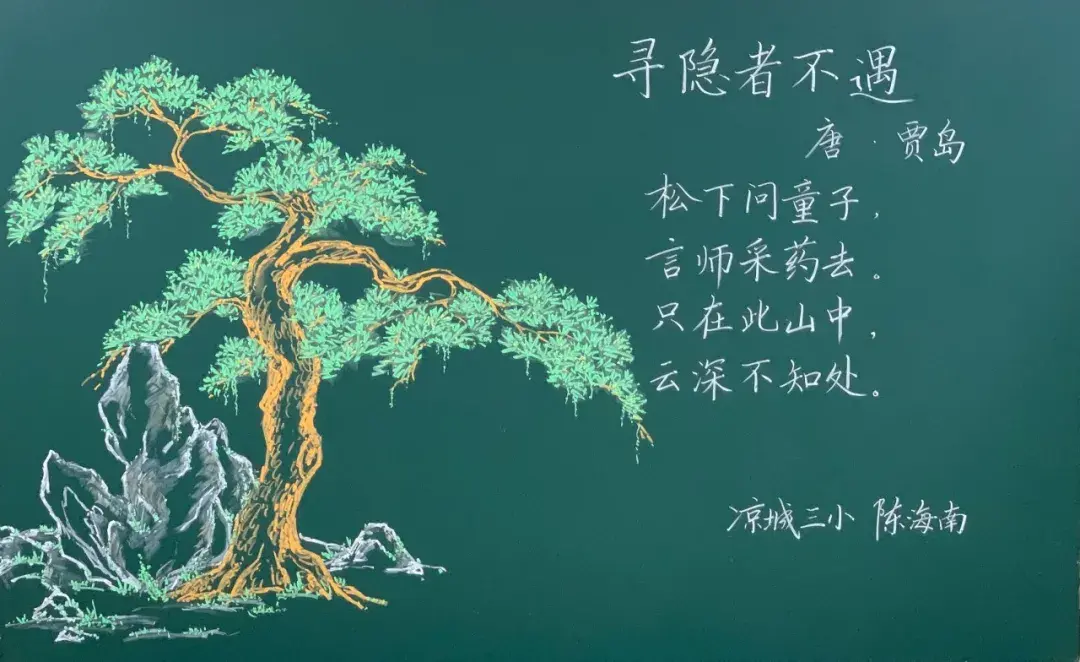 寻隐者不遇
唐·贾岛
松下问童子，
言师采药去。
只在此山中，
云深不知处。
凉城三小 陈海南